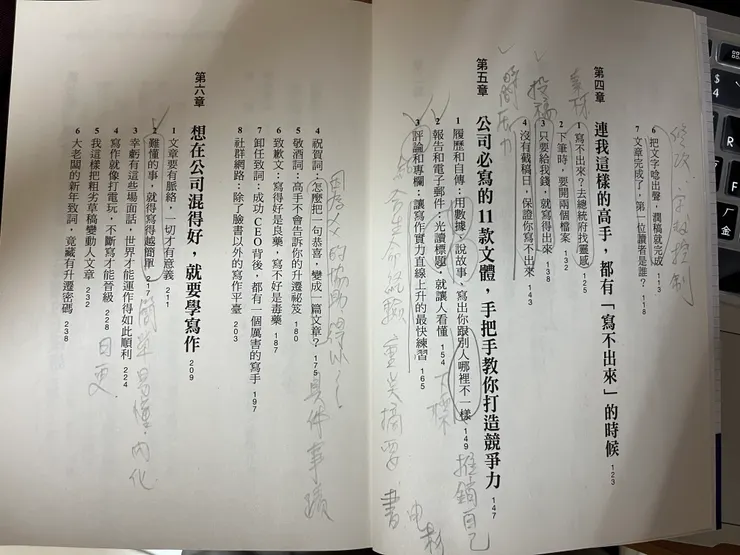 6 把文字唸出聲，潤稿就完成 113
修改、字數控制
7 文章完成了，第一位讀者是誰？ 118
第四章 連我這樣的高手，都有「寫不出來」的時候 123
素材
1 寫不出來？去總統府找靈感 125
2 下筆時，要開兩個檔案 132
投稿
3 只要給我錢，就寫得出來 138
時間壓力
4 沒有截稿日，保證你寫不出來 143
第五章 公司必寫的11款文體，手把手教你打造競爭力 147
1 履歷和自傳：用數據、說故事，寫出你跟別人哪裡不一樣 149
推銷自己
2 報告和電子郵件：光讀標題，就讓人看懂 154
下標
3 評論和專欄：讓寫作實力直線上升的最快練習 165
結合生命經驗 重點摘要 書 電影
4 祝賀詞：怎麼把一句恭喜，變成一篇文章？ 175
具体事蹟
5 敬酒詞：高手不會告訴你的升遷祕笈 180
6 致歉文：寫得好是良藥，寫不好是毒藥 187
7 卸任致詞：成功CEO背後，都有一個厲害的寫手 197
8 社群網路：除了臉書以外的寫作平臺 203
第六章 想在公司混得好，就要學寫作 209
1 文章要有脈絡，一切才有意義 211
2 難懂的事，就得寫得越簡單 217
簡單易懂、內化
3 幸虧有這些場面話，世界才能運作得如此順利 224
4 寫作就像打電玩，不斷寫才能晉級 228
日更
5 我這樣把粗劣草稿變動人文章 232
6 大老闆的新年致詞，竟藏有升遷密碼 238